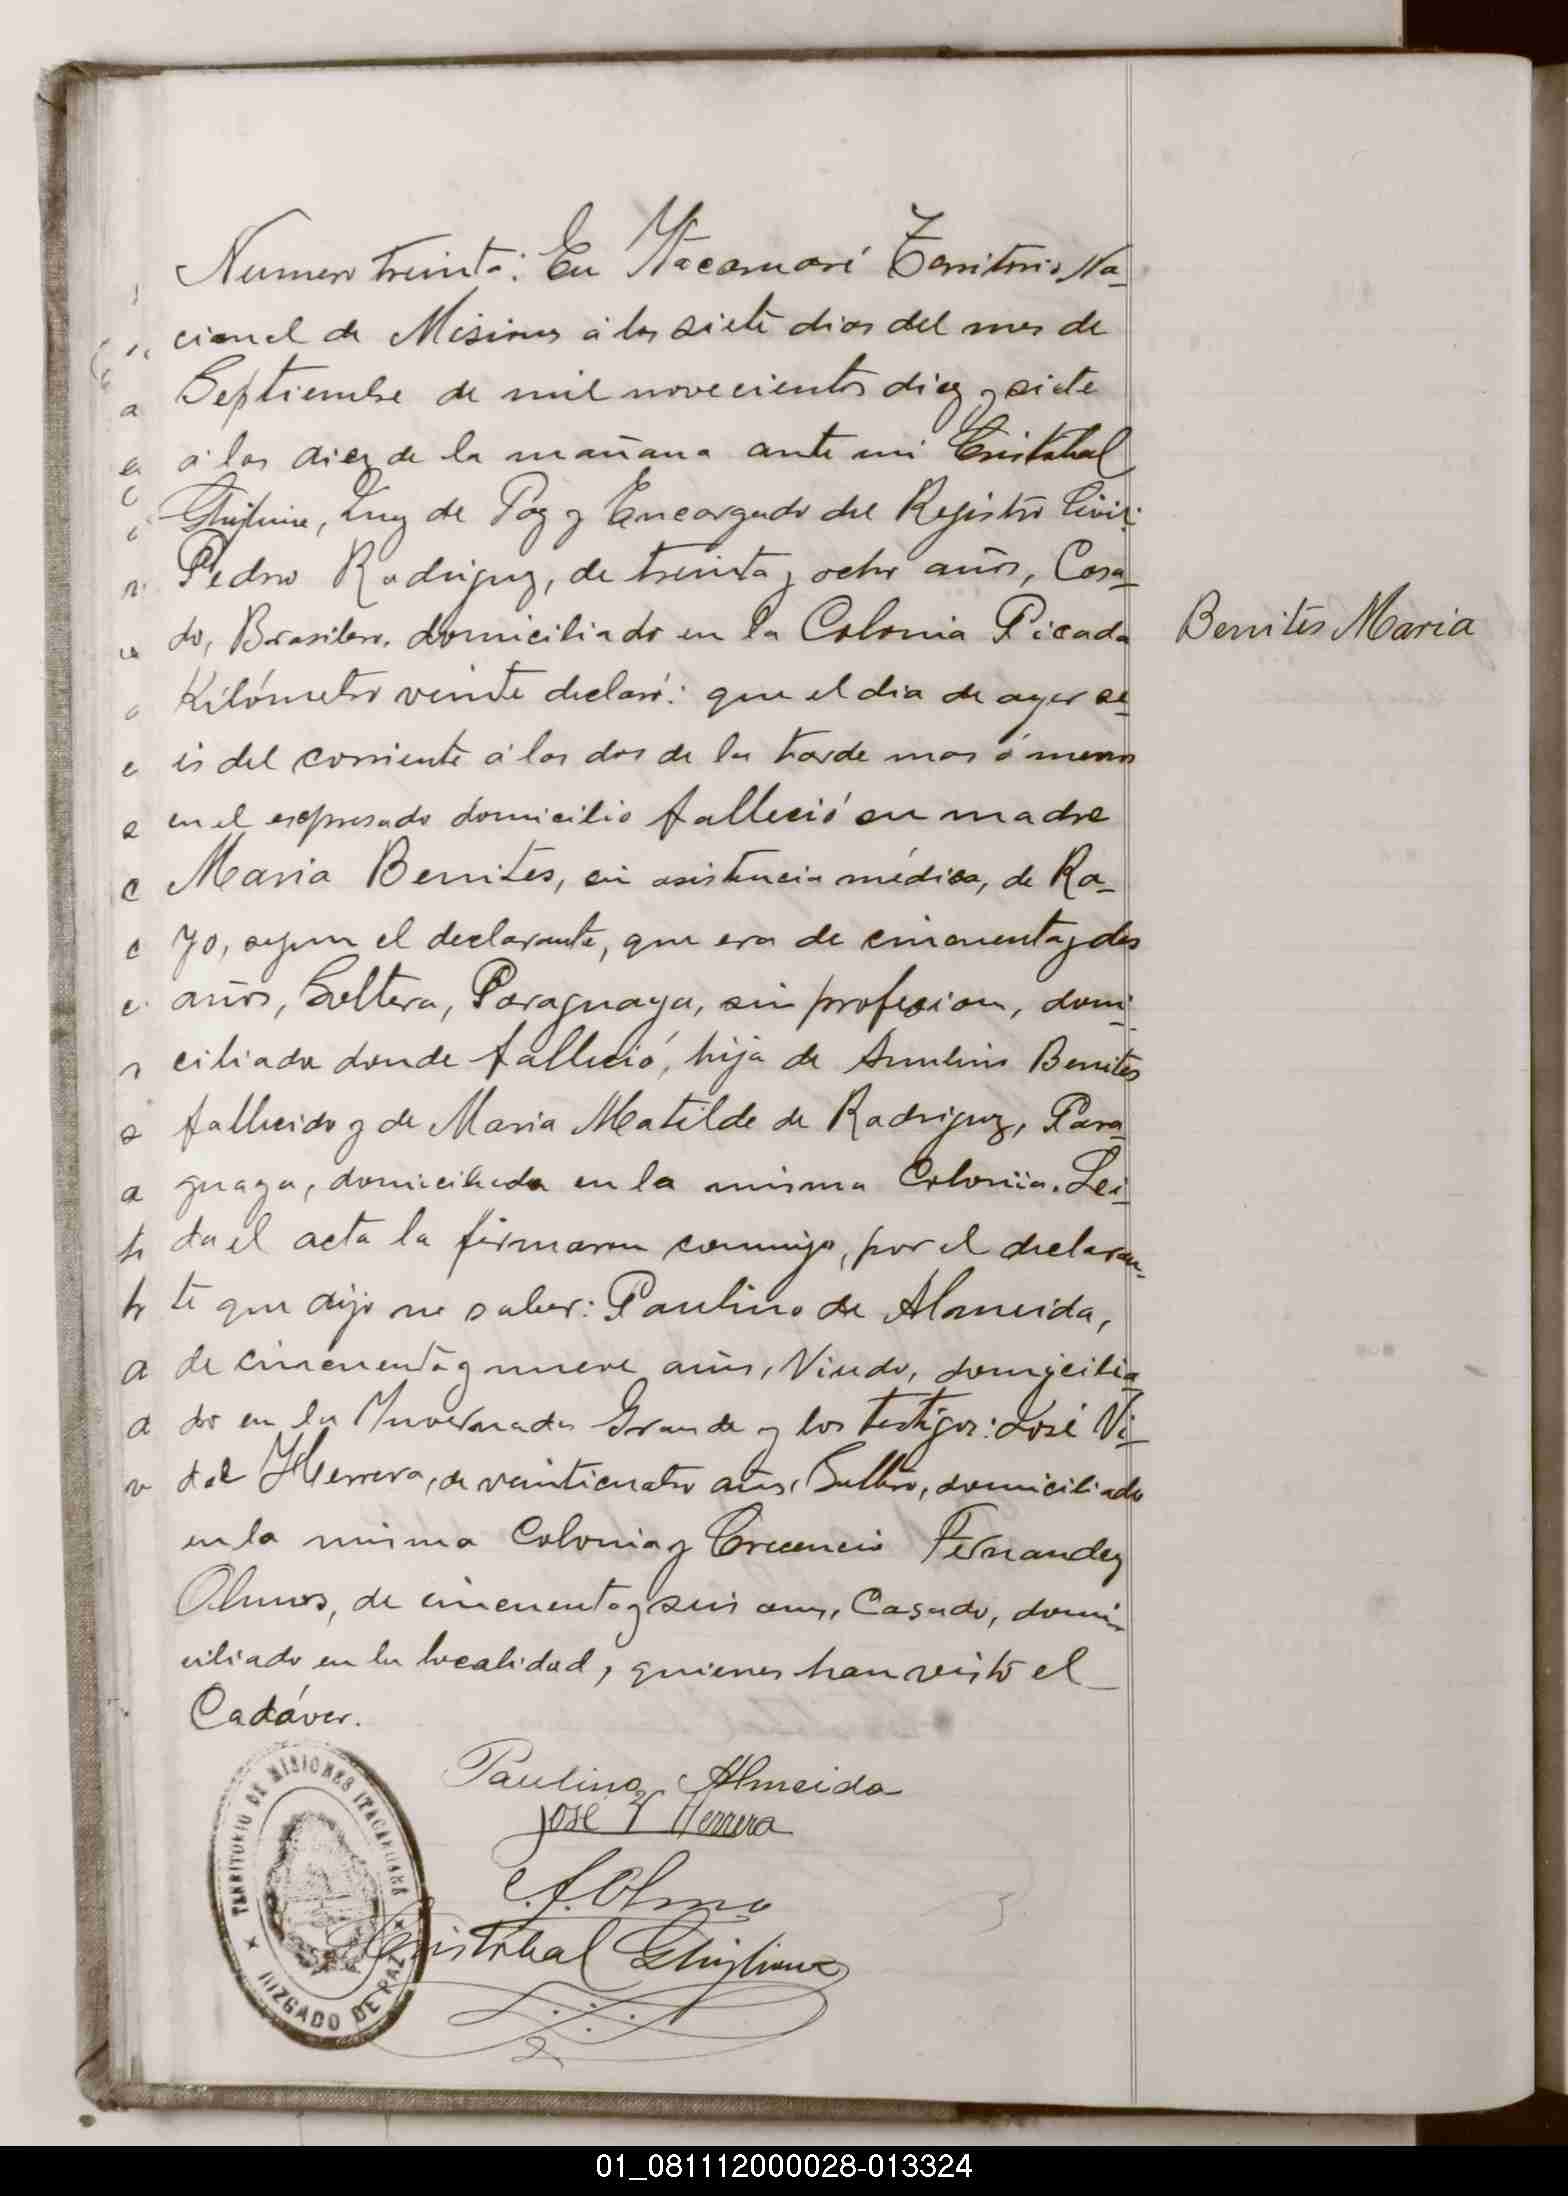 Numero treinta: En Itacaruaré Territorio Na-
cional de Misiones á los siete dias del mes de
Septiembre de mil novecientos diez y siete
á las diez de la mañana ante mi Cristobal
Ghigliune, Juez de Paz y Encargado del Registro Civil:
Pedro Rodriguez, de treinta y ocho años, Casa-
do, Brasilero, domiciliado en la Colonia Picada
Kilómetro veinte declaró: que el dia de ayer se-
is del corriente á las dos de la tarde mas ó menos
en el espresado domicilio falleció su madre
Maria Benites, sin asistencia médica, de Ra-
yo, segun el declarante, que era de cincuenta y dos
años, Soltera, Paraguaya, sin profesion, domi-
ciliada donde falleció, hija de Benites
fallecido y de Maria Matilde de Rodriguez, Para-
guaya, domiciliada en la misma Colonia. Lei-
da el acta la firmaron conmigo, por el declaran-
te que dijo no saber: Paulino de Almeida,
de cincuenta y nueve años, Viudo, domicilia-
do en la Invernada Grande y los testigos: José Vi-
dal Herrera, de veinticuatro años, Soltero, domiciliado
en la misma Colonia y Crecencio Fernandez
Olmos, de cincuenta y seis años, Casado, domi-
ciliado en la localidad, quienes han visto el
Cadáver.
Benites Maria
Paulino Almeida
José V Herrera
C. F. Olmo
Cristobal Ghigliune
TERRITORIO DE MISIONES ITACARUARE
JUZGADO DE PAZ
01_081112000028-013324